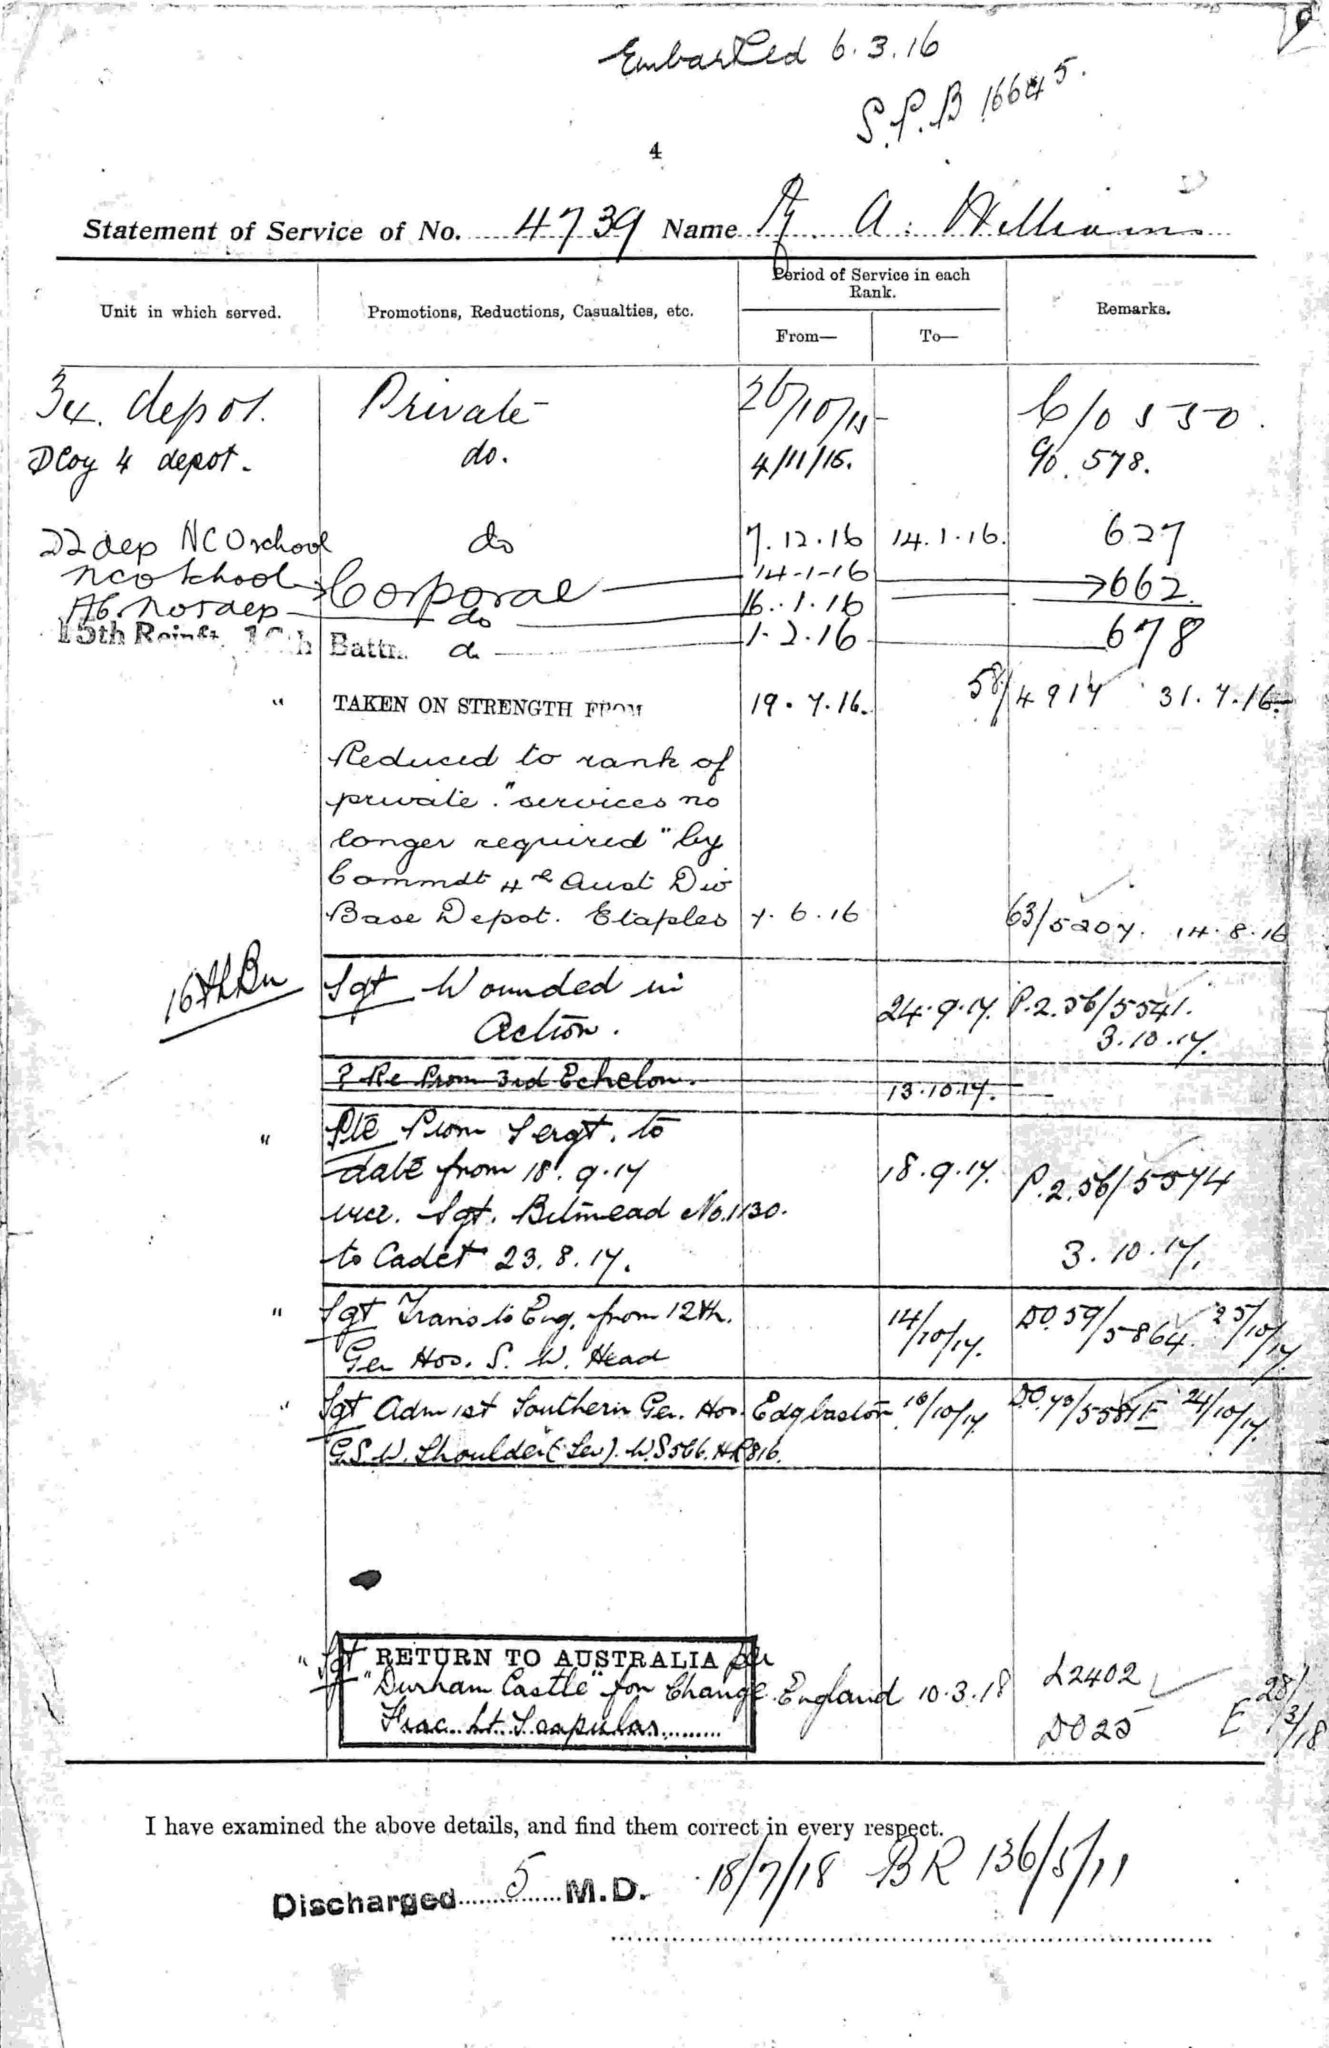 Embarked 6.3.16
S.P.B 16645.
4
Statement of Service of No. 4739 Name R. A. Williams
Unit in which served.
Promotions, Reductions, Casualties, etc.
Period of Service in each Rank.
From—
To—
Remarks.
34. depot. Private 26/10/15 - C/o 550.
D Coy 4 depot. do. 4/11/15. c/o. 578.
22 dep NCO school do 7.12.16 14.1.16. 627
NCO School Corporal 14-1-16 662
do 16.1.16
15th Reinft. 16th Battn. do 1.2.16 678
" TAKEN ON STRENGTH FROM 19.7.16. 58/4917 31.7.16.
Reduced to rank of
private. "services no
longer required" by
Commdt 4th Aust Div
Base Depot. Etaples 7.6.16 63/5207. 14.8.16
16th Bn Sgt Wounded in
Action. 24.9.17. P.2.56/5541.
3.10.17.
? Re Prom 3rd Echelon. 13.10.17.
" Pte Prom Sergt. to
date from 18.9.17 18.9.17. P.2.56/5574
vice. Sgt. Bitmead No.1130.
to Cadet 23.8.17. 3.10.17.
" Sgt Trans to Eng. from 12th. 14/10/17. DO.59/5864. 25/10/17.
Gen Hos. S. W. Head
" Sgt Adm 1st Southern Gen. Hos. Edgbaston 16/10/17. DO.70/5581E 24/10/17.
G.S.W. Shoulder (Sev). W.S566. HR816.
" Sgt RETURN TO AUSTRALIA per
"Durham Castle" for Change England 10.3.18 L2402
Frac. Lt. Scapulas DO25 E 28/3/18
I have examined the above details, and find them correct in every respect.
Discharged 5 M.D. 18/7/18 BR 136/5/11